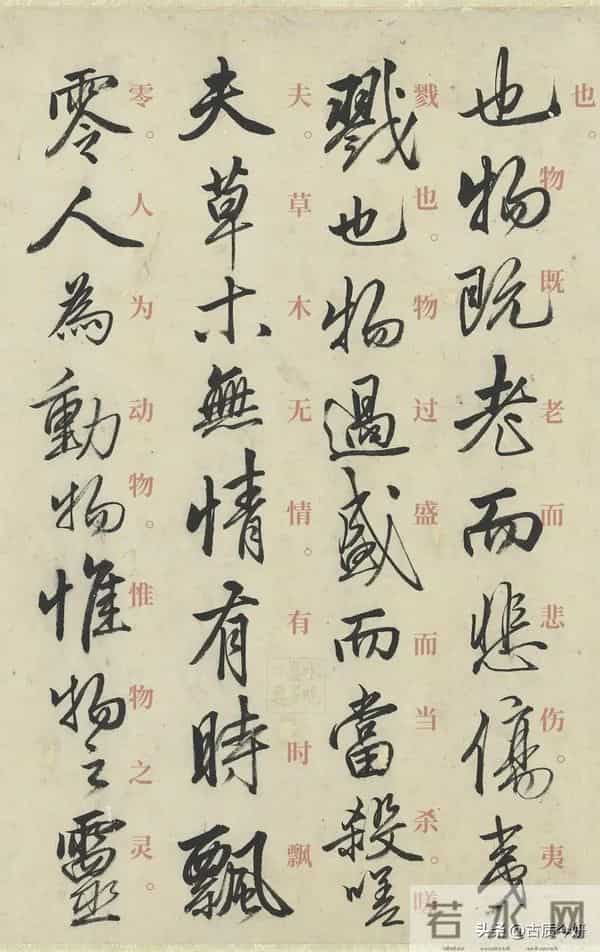 也物既老而悲傷夷
也。物既老而悲伤。夷
戮也物過盛而當殺嗟
戮也。物过盛而当杀。嗟
夫草木無情有時飄
夫。草木无情。有时飘
零人為動物惟物之靈
零。人为动物。惟物之灵。
若水网
头条@古质今妍